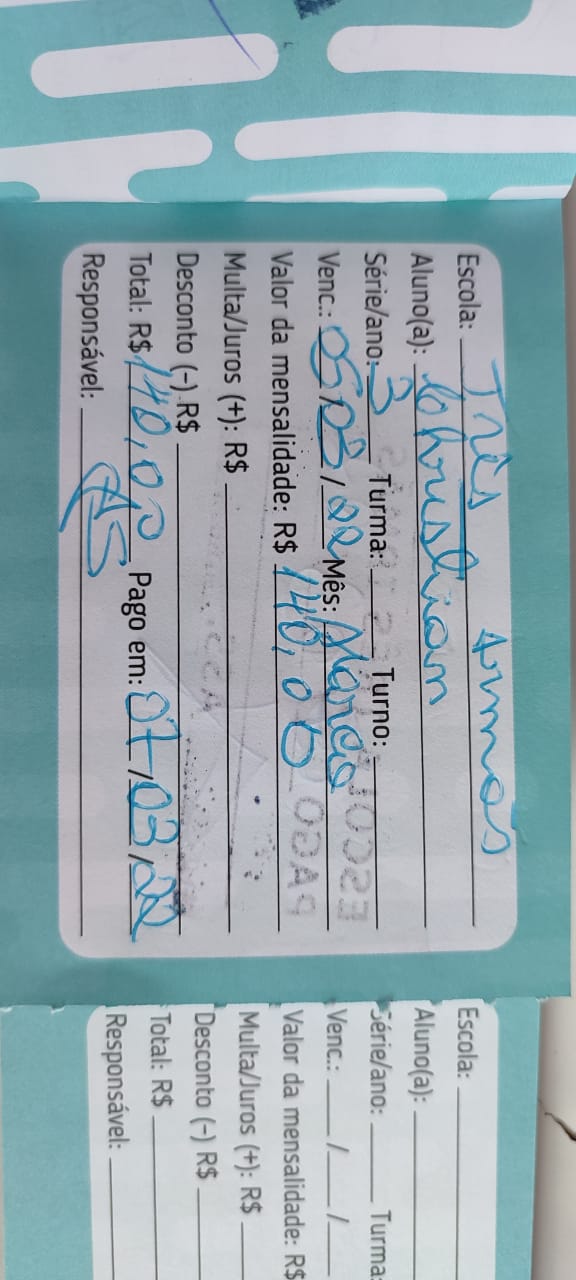 Escola: Três Irmãs
Aluno(a): Christian
Série/ano: 3 Turma: Turno:
Venc.: 05/03/22 Mês: Março
Valor da mensalidade: R$ 140,00
Multa/Juros (+): R$
Desconto (-) R$
Total: R$ 140,00 Pago em: 07/03/22
Responsável: AS
Escola:
Aluno(a):
Série/ano: Turma:
Venc.: / /
Valor da mensalidade: R$
Multa/Juros (+): R$
Desconto (-) R$
Total: R$
Responsável: